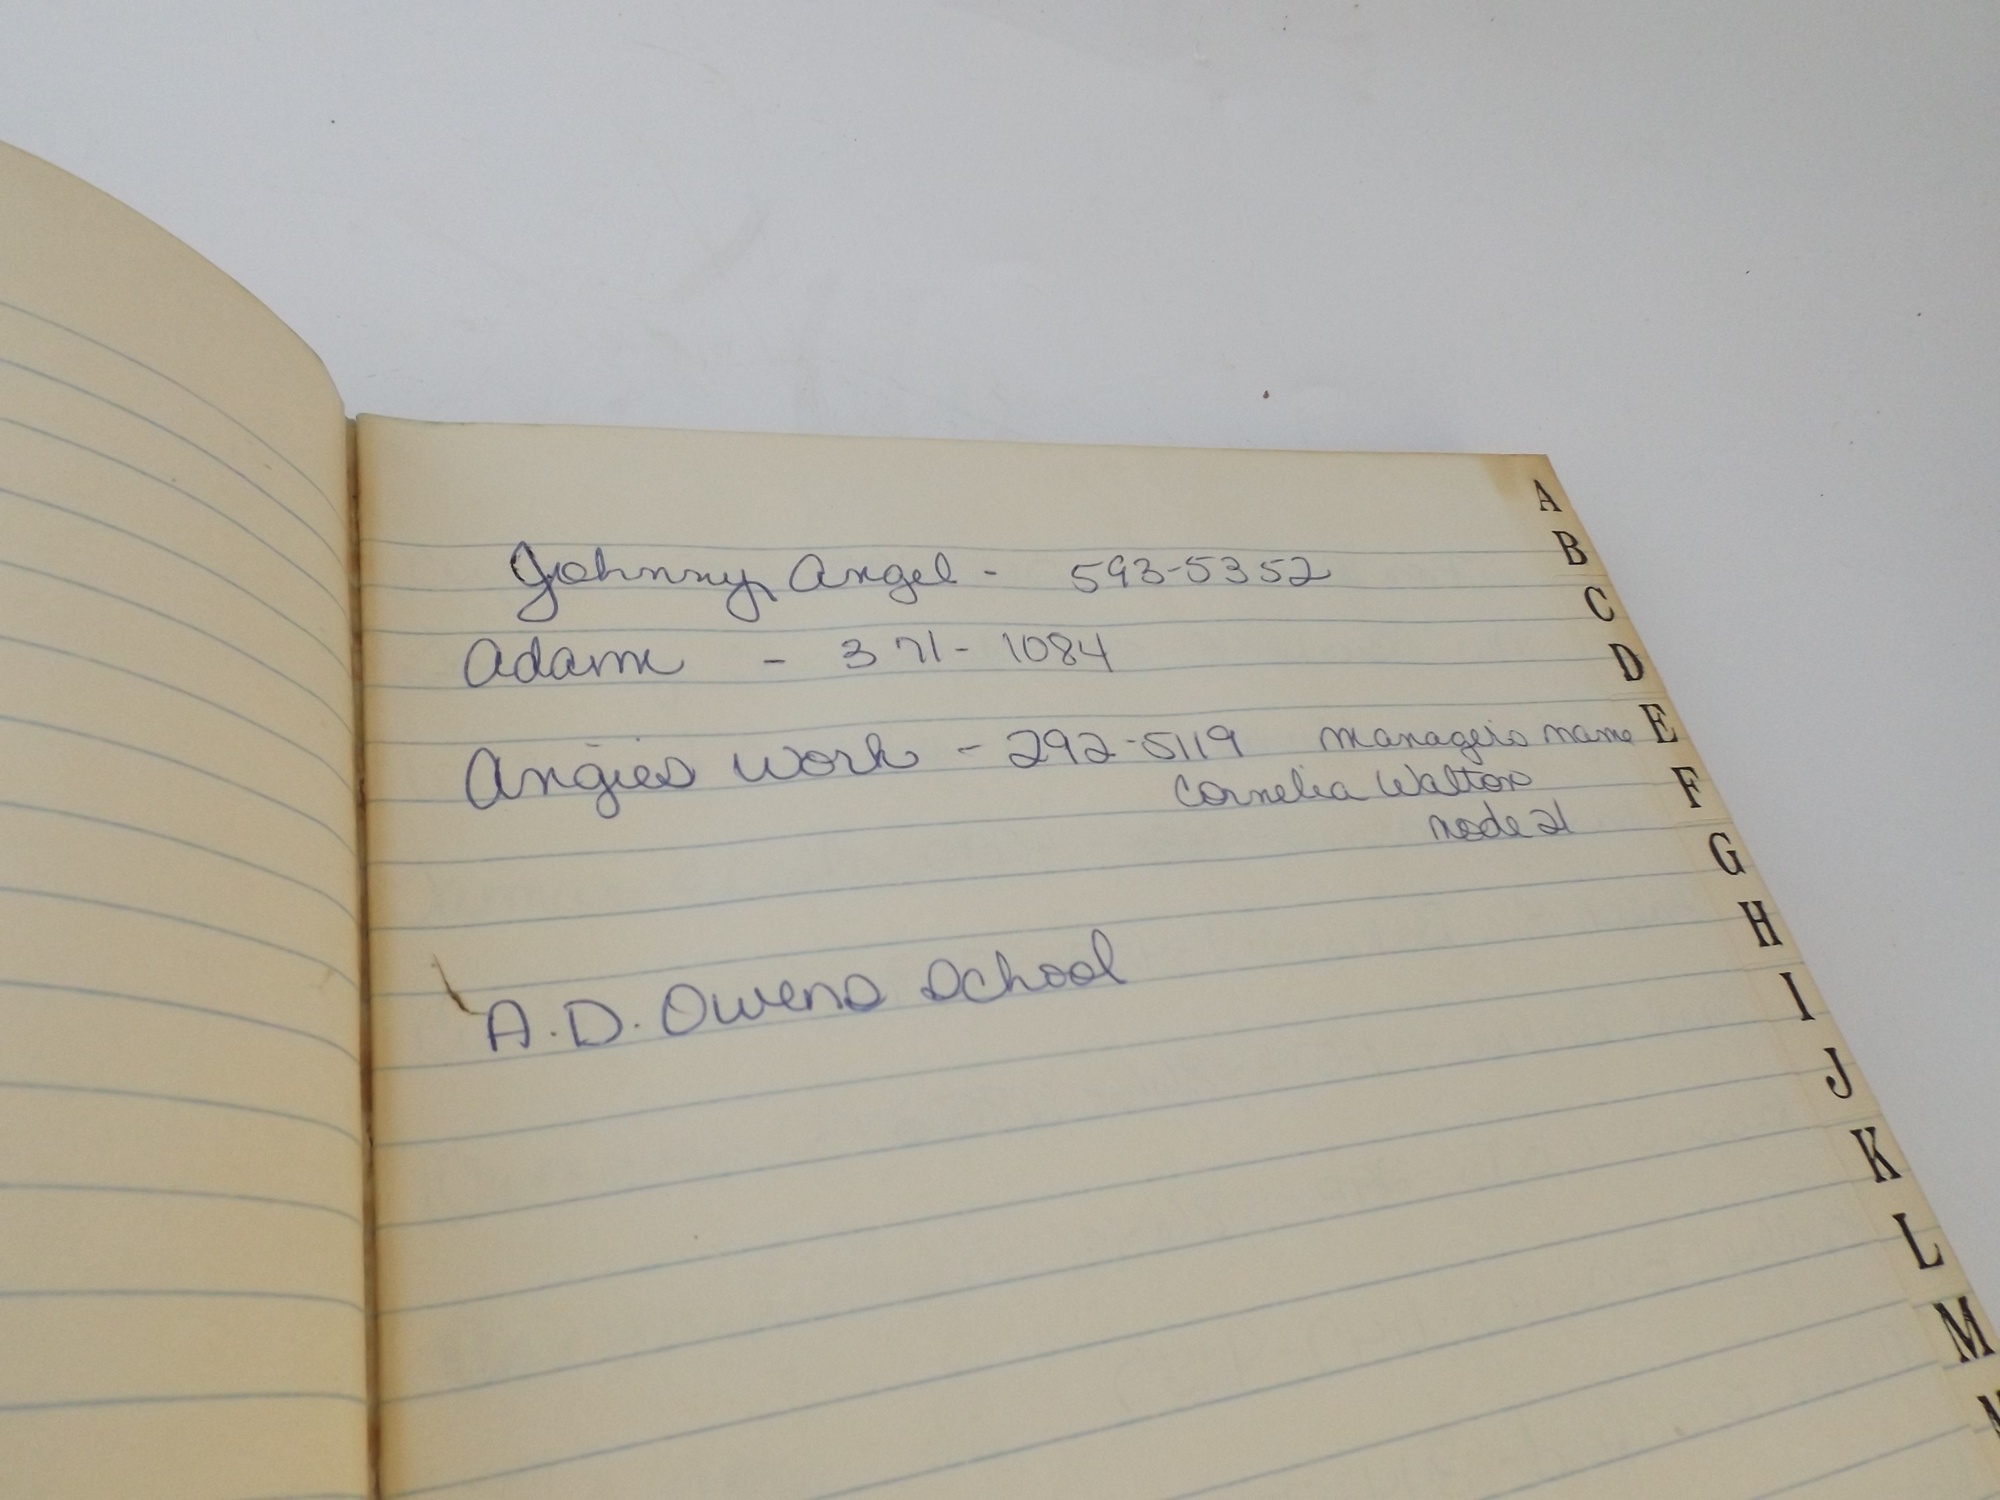 Johnny Angel - 593-5352
Adam - 371-1084
Angies work - 292-5119 manager's name
Cornelia Walton
node 21
A.D. Owens School
A
B
C
D
E
F
G
H
I
J
K
L
M